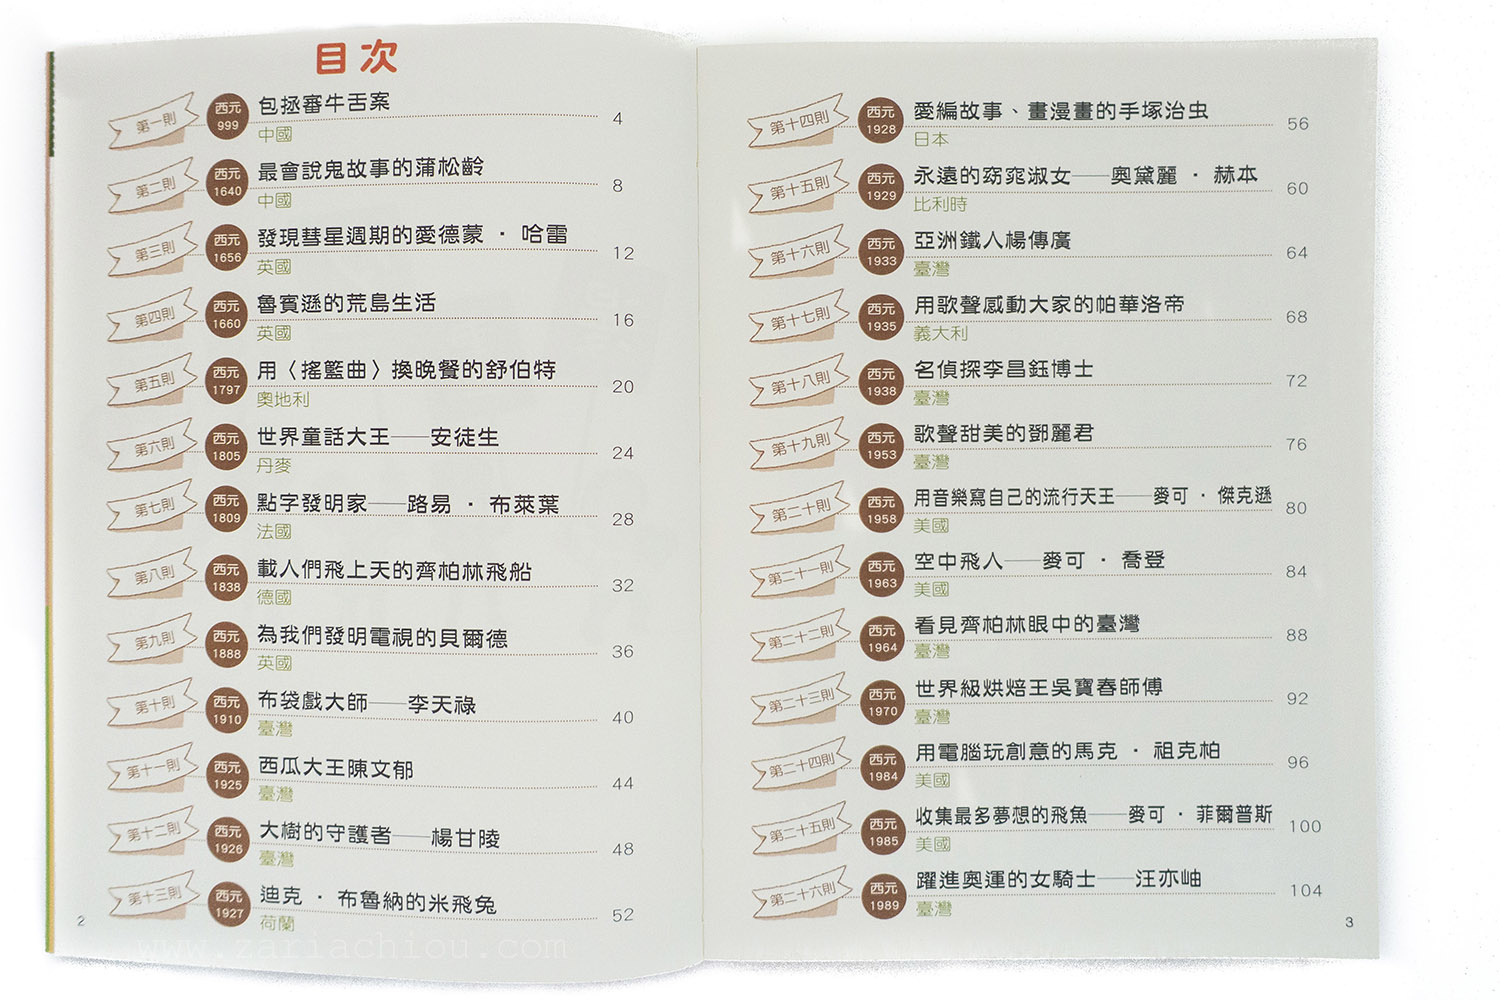 目次
第一則 西元 999 包拯審牛舌案 4
中國
第二則 西元 1640 最會說鬼故事的蒲松齡 8
中國
第三則 西元 1656 發現彗星週期的愛德蒙・哈雷 12
英國
第四則 西元 1660 魯賓遜的荒島生活 16
英國
第五則 西元 1797 用〈搖籃曲〉換晚餐的舒伯特 20
奧地利
第六則 西元 1805 世界童話大王——安徒生 24
丹麥
第七則 西元 1809 點字發明家——路易・布萊葉 28
法國
第八則 西元 1838 載人們飛上天的齊柏林飛船 32
德國
第九則 西元 1888 為我們發明電視的貝爾德 36
英國
第十則 西元 1910 布袋戲大師——李天祿 40
臺灣
第十一則 西元 1925 西瓜大王陳文郁 44
臺灣
第十二則 西元 1926 大樹的守護者——楊甘陵 48
臺灣
第十三則 西元 1927 迪克・布魯納的米飛兔 52
荷蘭
2
第十四則 西元 1928 愛編故事、畫漫畫的手塚治虫 56
日本
第十五則 西元 1929 永遠的窈窕淑女——奧黛麗・赫本 60
比利時
第十六則 西元 1933 亞洲鐵人楊傳廣 64
臺灣
第十七則 西元 1935 用歌聲感動大家的帕華洛帝 68
義大利
第十八則 西元 1938 名偵探李昌鈺博士 72
臺灣
第十九則 西元 1953 歌聲甜美的鄧麗君 76
臺灣
第二十則 西元 1958 用音樂寫自己的流行天王——麥可・傑克遜 80
美國
第二十一則 西元 1963 空中飛人——麥可・喬登 84
美國
第二十二則 西元 1964 看見齊柏林眼中的臺灣 88
臺灣
第二十三則 西元 1970 世界級烘焙王吳寶春師傅 92
臺灣
第二十四則 西元 1984 用電腦玩創意的馬克・祖克柏 96
美國
第二十五則 西元 1985 收集最多夢想的飛魚——麥可・菲爾普斯 100
美國
第二十六則 西元 1989 躍進奧運的女騎士——汪亦岫 104
臺灣
3
www.zariachiou.com